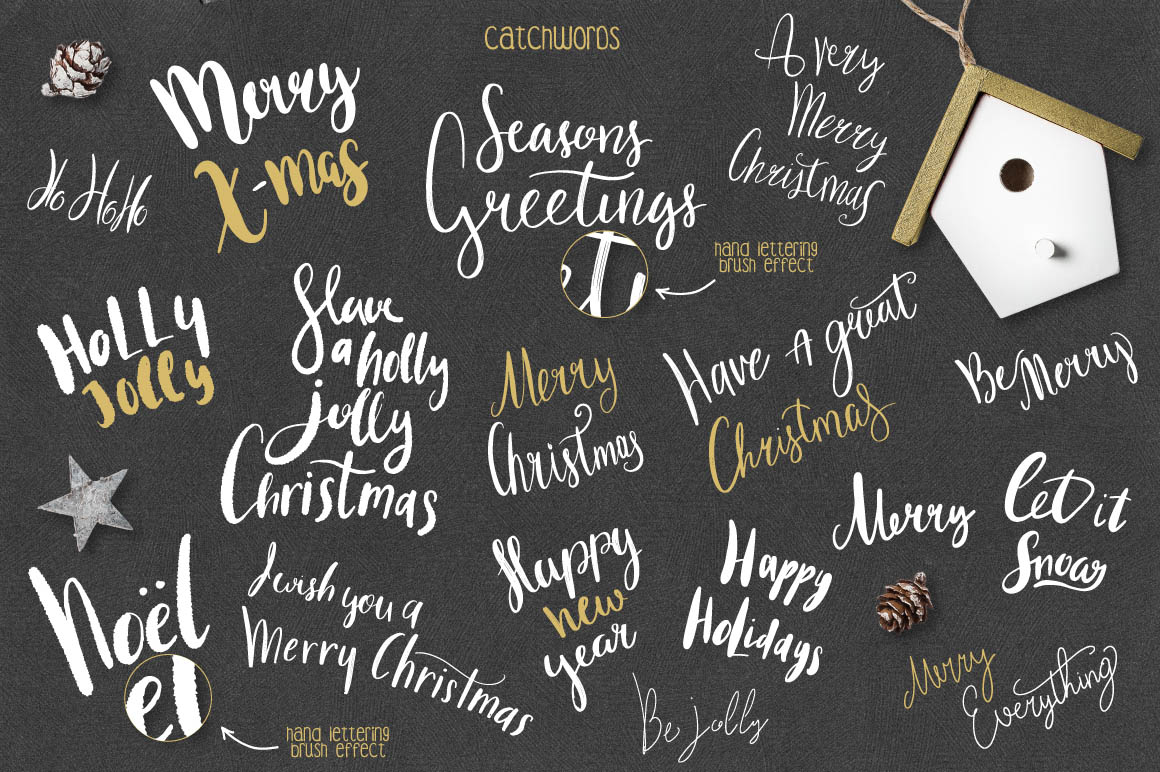 Catchwords
Merry
X-mas
Ho HoHo
Seasons
Greetings
A very
Merry
Christmas
et
hand lettering
brush effect
Holly
Jolly
Have
a holly
jolly
Christmas
Merry
Christmas
Have A great
Christmas
Be Merry
Merry
Let it
Snow
Noël
el
hand lettering
brush effect
I wish you a
Merry Christmas
Happy
new
year
Happy
Holidays
Be jolly
Merry
Everything